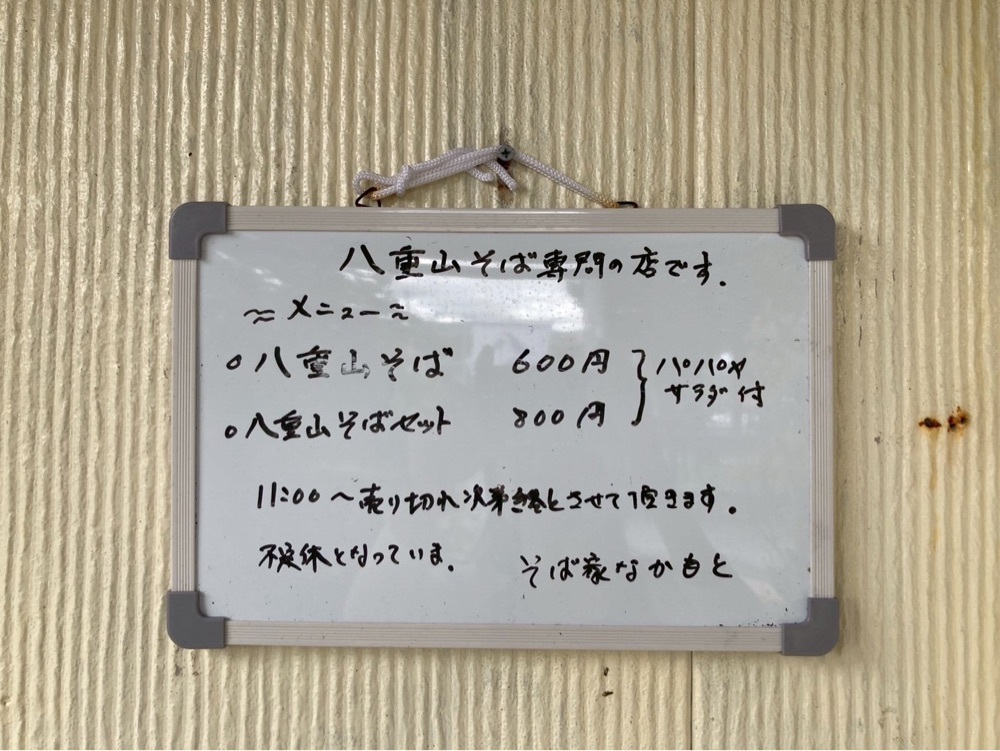 八重山そば専門の店です.
≈メニュー≈
○八重山そば 600円
○八重山そばセット 800円
} パパイヤ
サラダ付
11:00〜売り切れ次第終とさせて頂きます。
不定休となっていま.
そば家なかもと